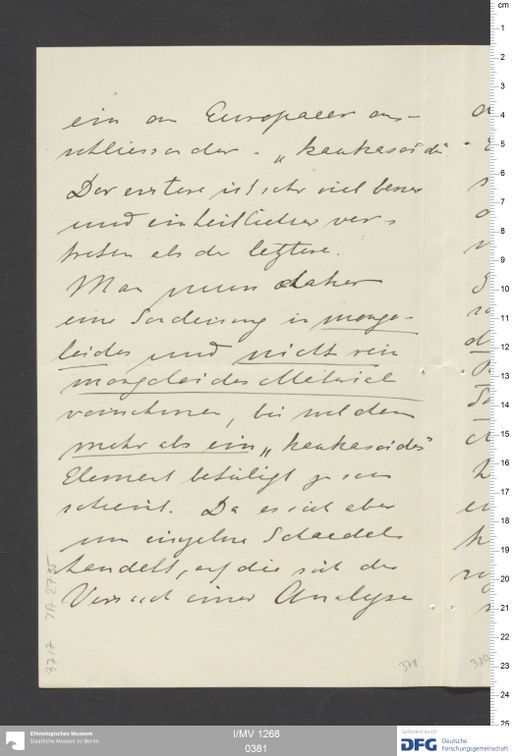 ein an Europaeer an-
schliessender - „kaukasoide"
Der erstere ist sehr viel besser
und einheitlicher ver-
treten als der letztere.
Man muss daher
eine Sonderung in mongo-
loides und nicht rein
mongoloides Material
vornehmen, bei welchem
mehr als ein „kaukasoides"
Element beteiligt zu sein
scheint. Da es sich aber
um einzelne Schaedel
handelt, auf die sich der
Versuch einer Analyse
378
I/MV 1268
0381
Ethnologisches Museum
Staatliche Museen zu Berlin
Gefördert durch
DFG Deutsche
Forschungsgemeinschaft
cm
1
2
3
4
5
6
7
8
9
10
11
12
13
14
15
16
17
18
19
20
21
22
23
24
25